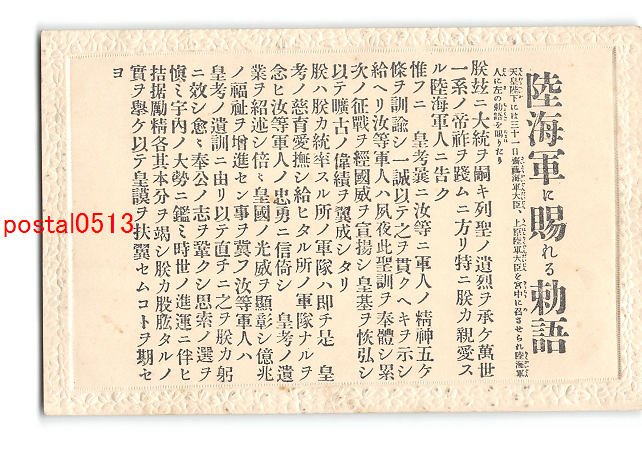 陸海軍に賜れる勅語
天皇陛下には三十一日齋藤海軍大臣、上原陸軍大臣を宮中に召させられ陸海軍
人に左の勅語を賜りたり
朕玆ニ大統ヲ嗣キ列聖ノ遺烈ヲ承ケ萬世
一系ノ帝祚ヲ踐ムニ方リ特ニ朕カ親愛ス
ル陸海軍人ニ告ク
惟フニ　皇考曩ニ汝等ニ軍人ノ精神五ケ
條ヲ訓諭シ一誠以テ之ヲ貫クヘキヲ示シ
給ヘリ汝等軍人ハ夙夜此聖訓ヲ奉體シ累
次ノ征戰ヲ經國威ヲ宣揚シ皇基ヲ恢弘シ
以テ曠古ノ偉績ヲ翼成シタリ
朕ハ朕カ統率スル所ノ軍隊ハ即チ是　皇
考ノ慈育愛撫シ給ヒタル所ノ軍隊ナルヲ
念ヒ汝等軍人ノ忠勇ニ信倚シ　皇考ノ遺
業ヲ紹述シ倍々皇國ノ光威ヲ顯彰シ億兆
ノ福祉ヲ增進セン事ヲ冀フ汝等軍人ハ
皇考ノ遺訓ニ由リ以テ直チニ之ヲ朕カ躬
ニ效シ愈々奉公ノ志ヲ鞏クシ思索ノ選ヲ
愼ミ宇內ノ大勢ニ鑑ミ時世ノ進運ニ伴ヒ
拮据勵精各其本分ヲ竭シ朕カ股肱タルノ
實ヲ擧ケ以テ皇謨ヲ扶翼セムコトヲ期セ
ヨ
postal0513